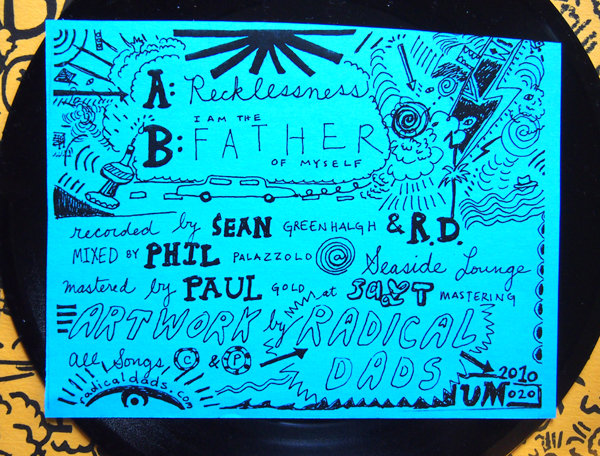 A: Recklessness
B: I AM THE
FATHER
OF MYSELF
recorded by SEAN GREENHALGH & R.D.
MIXED BY PHIL PALAZZOLO @ Seaside Lounge
mastered by PAUL GOLD at SALT MASTERING
ARTWORK by RADICAL DADS
All Songs © & ℗
radicaldads.com
2010
UM020